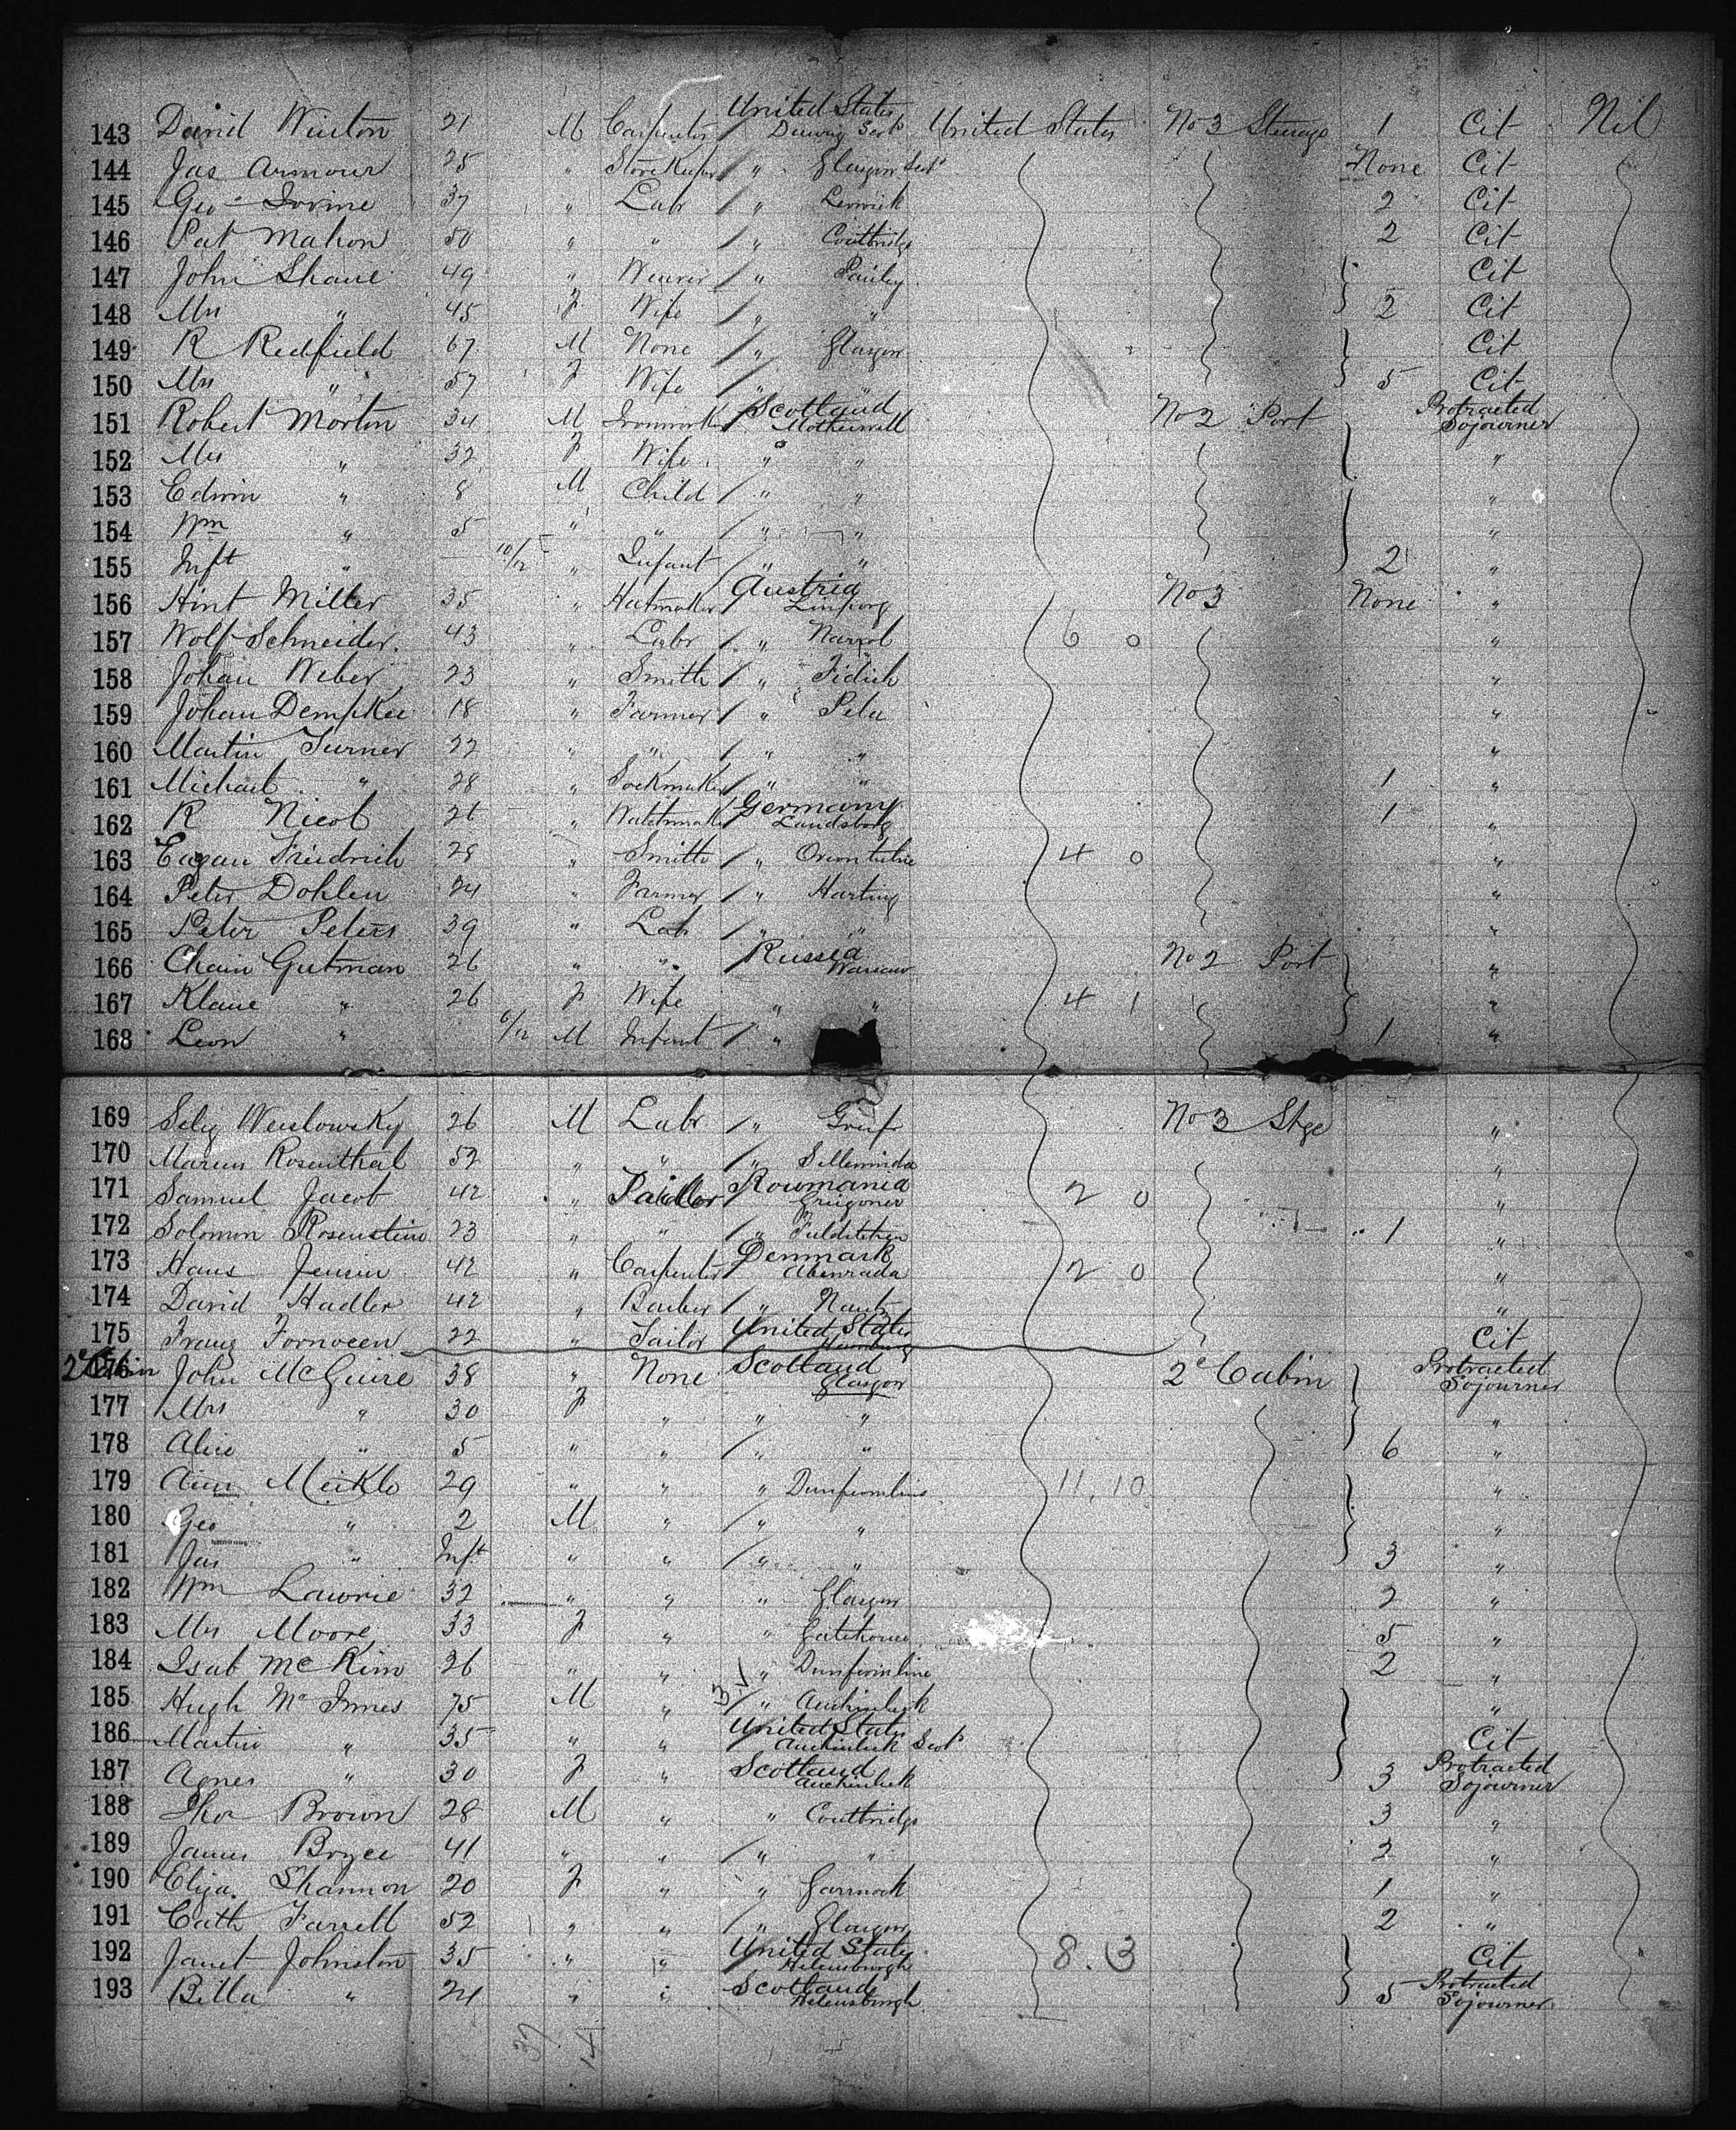 143 David Winton 21 M Carpenter / United States United States No 3 Steerage 1 Cit Nil
144 Jas Armour 25 " Store Keeper / " Glasgow Scot None Cit
145 Geo Irvine 37 " Labr / " Lerwick 2 Cit
146 Pat Mahon 50 " " / " Coatbridge 2 Cit
147 John Shane 49 " Weaver / " Paisley Cit
148 Mrs " 45 F Wife / " " 2 Cit
149 R Redfield 67 M None / " Glasgow Cit
150 Mrs " 57 F Wife / " " 5 Cit
151 Robert Morton 34 M Ironworker / Scotland Motherwell No 2 Port Protracted Sojourner
152 Mrs " 32 F Wife / " " "
153 Edwin " 8 M Child / " " "
154 Wm " 5 " " / " " "
155 Inft " 10/12 " Infant / " " 2 "
156 Hint Miller 35 " Hatmaker / Austria No 3 None "
157 Wolf Schneider 43 " Labr / " 6 0 "
158 Johan Weber 23 " Smith / " Fidich "
159 Johan Dempkee 18 " Farmer / " Pela "
160 Martin Turner 22 " " / " " "
161 Michael " 28 " Sockmaker / " " 1 "
162 R Nicol 26 " Watchmaker / Germany Landsborg 1 "
163 Friedrich 28 " Smith / " 4 0 "
164 Peter Dohlen 24 " Farmer / " Harting "
165 Peter Peters 39 " Labr / " " "
166 Chain Gutman 26 " " / Russia Warsaw No 2 Port "
167 Klane " 26 F Wife " " 4 1 "
168 Leon " 6/12 M Infant / " 1 "
169 Selig Weislowsky 26 M Labr / " No 3 Stge "
170 Marcus Rosenthal 52 " " / " "
171 Samuel Jacob 42 " Paidler / Roumania 2 0 "
172 Solomon Rosenstein 23 " " / " 1 "
173 Hans Jensen 42 " Carpenter / Denmark Abenrada 2 0 "
174 David Hadler 42 " Barber / " "
175 Franz Fornoeen 22 " Tailor / United States Hamburg Cit
2e Cabin 176 John McGuire 38 " None Scotland Glasgow 2e Cabin Protracted Sojourner
177 Mrs " 30 F " " " "
178 Alice " 5 " " / " " 6 "
179 Ann Meikle 29 " " " Dunfermline 11.10 "
180 Geo " 2 M " / " " "
181 Jas " Inft " " / " " 3 "
182 Wm Lawrie 32 " " " Glasgow 2 "
183 Mrs Moore 33 F " " Gatehouse 5 "
184 Isab McKim 26 " " " Dunfermline 2 "
185 Hugh McInnes 75 M " / " Auchinleck "
186 Martin " 35 " " United States Auchinleck Scot Cit
187 Agnes " 30 F " Scotland Auchinleck 3 Protracted Sojourner
188 Thos Brown 28 M " " Coatbridge 3 "
189 James Bryce 41 " " / " " 2 "
190 Eliza Shannon 20 F " " Garnock 1 "
191 Cath Farrell 52 " " / " Glasgow 2 "
192 Janet Johnston 35 " " / United States Helensburgh 8.3 Cit
193 Billa " 24 " " Scotland Helensburgh 5 Protracted Sojourner
37 14